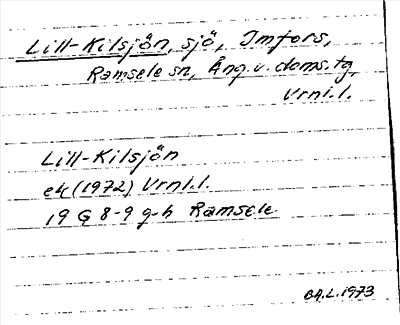 Lill-Kilsjön, sjö, Imfors,
Ramsele sn, Ång. v. doms. tg,
Vrnl. l.
Lill-Kilsjön
ek (1972) Vrnl. l.
19 G 8-9 g-h Ramsele
BA.L. 1973